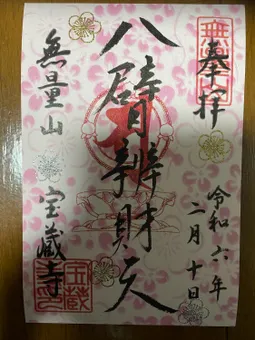 奉拝
令和六年
二月十日
八臂辨財天
無量山
宝蔵寺